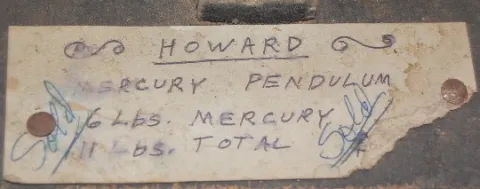 HOWARD
MERCURY PENDULUM
6 Lbs. MERCURY
11 Lbs. TOTAL
Sold
Sold